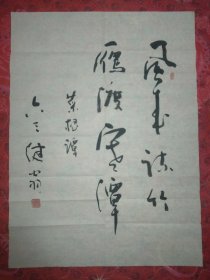 風来疎竹
雁渡寒潭
菜根譚